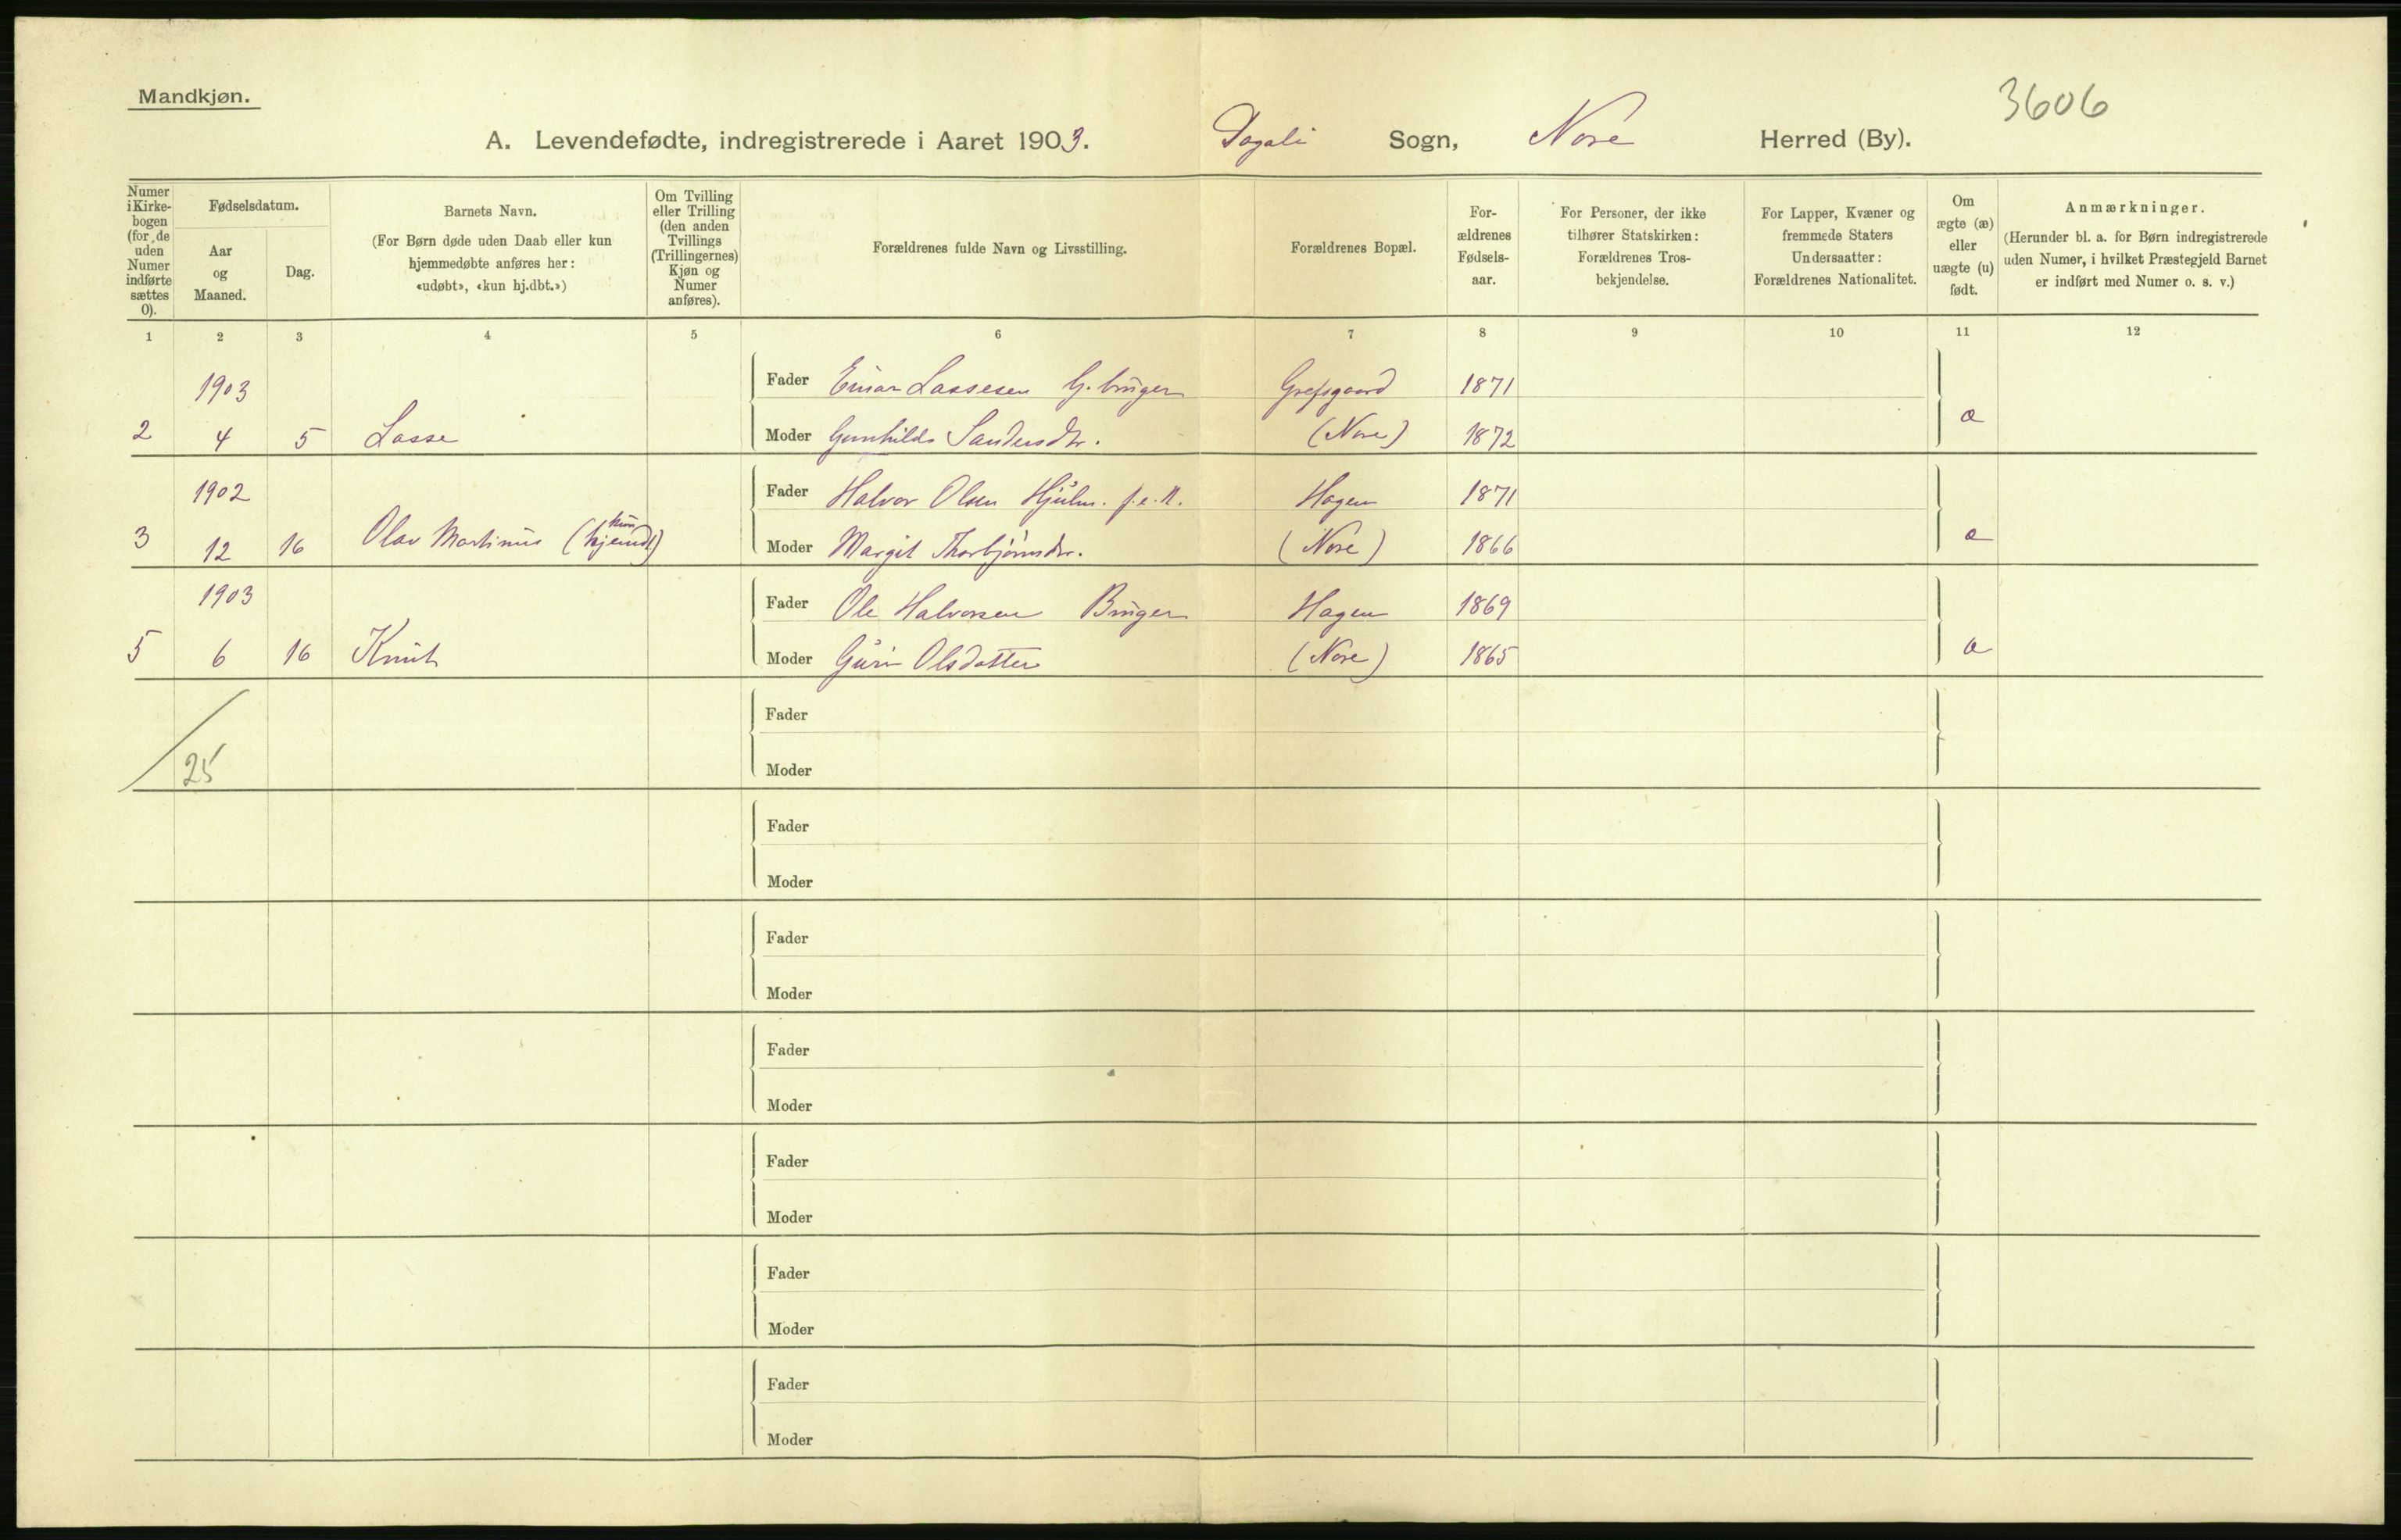 Mandkjøn.
3606
A. Levendefødte, indregistrerede i Aaret 1903. Dagali Sogn, Nore Herred (By).
Numer i Kirkebogen (for de uden Numer indførte sættes 0).
Fødselsdatum.
Aar og Maaned.
Dag.
Barnets Navn.
(For Børn døde uden Daab eller kun
hjemmedøbte anføres her:
«udøbt», «kun hj.dbt.»)
Om Tvilling
eller Trilling
(den anden
Tvillings
(Trillingernes)
Kjøn og
Numer
anføres).
Forældrenes fulde Navn og Livsstilling.
Forældrenes Bopæl.
For-
ældrenes
Fødsels-
aar.
For Personer, der ikke
tilhører Statskirken:
Forældrenes Tros-
bekjendelse.
For Lapper, Kvæner og
fremmede Staters
Undersaatter:
Forældrenes Nationalitet.
Om
ægte (æ)
eller
uægte (u)
født.
Anmærkninger.
(Herunder bl. a. for Børn indregistrerede
uden Numer, i hvilket Præstegjeld Barnet
er indført med Numer o. s. v.)
1 2 3 4 5 6 7 8 9 10 11 12
1903 Fader Einar Lassesen G.bruger Grefsgaard 1871
2 4 5 Lasse Moder Gunhilds Sandersdtr. (Nore) 1872 æ
1902 Fader Halvor Olsen Hjulm. f.e.R. Hagen 1871
kun
3 12 16 Olav Martinus (hjemdt) Moder Margit Thorbjørnsdtr. (Nore) 1866 æ
1903 Fader Ole Halvorsen Bruger Hagen 1869
5 6 16 Knut Moder Guri Olsdatter (Nore) 1865 æ
Fader
25
Moder
Fader
Moder
Fader
Moder
Fader
Moder
Fader
Moder
Fader
Moder
Fader
Moder